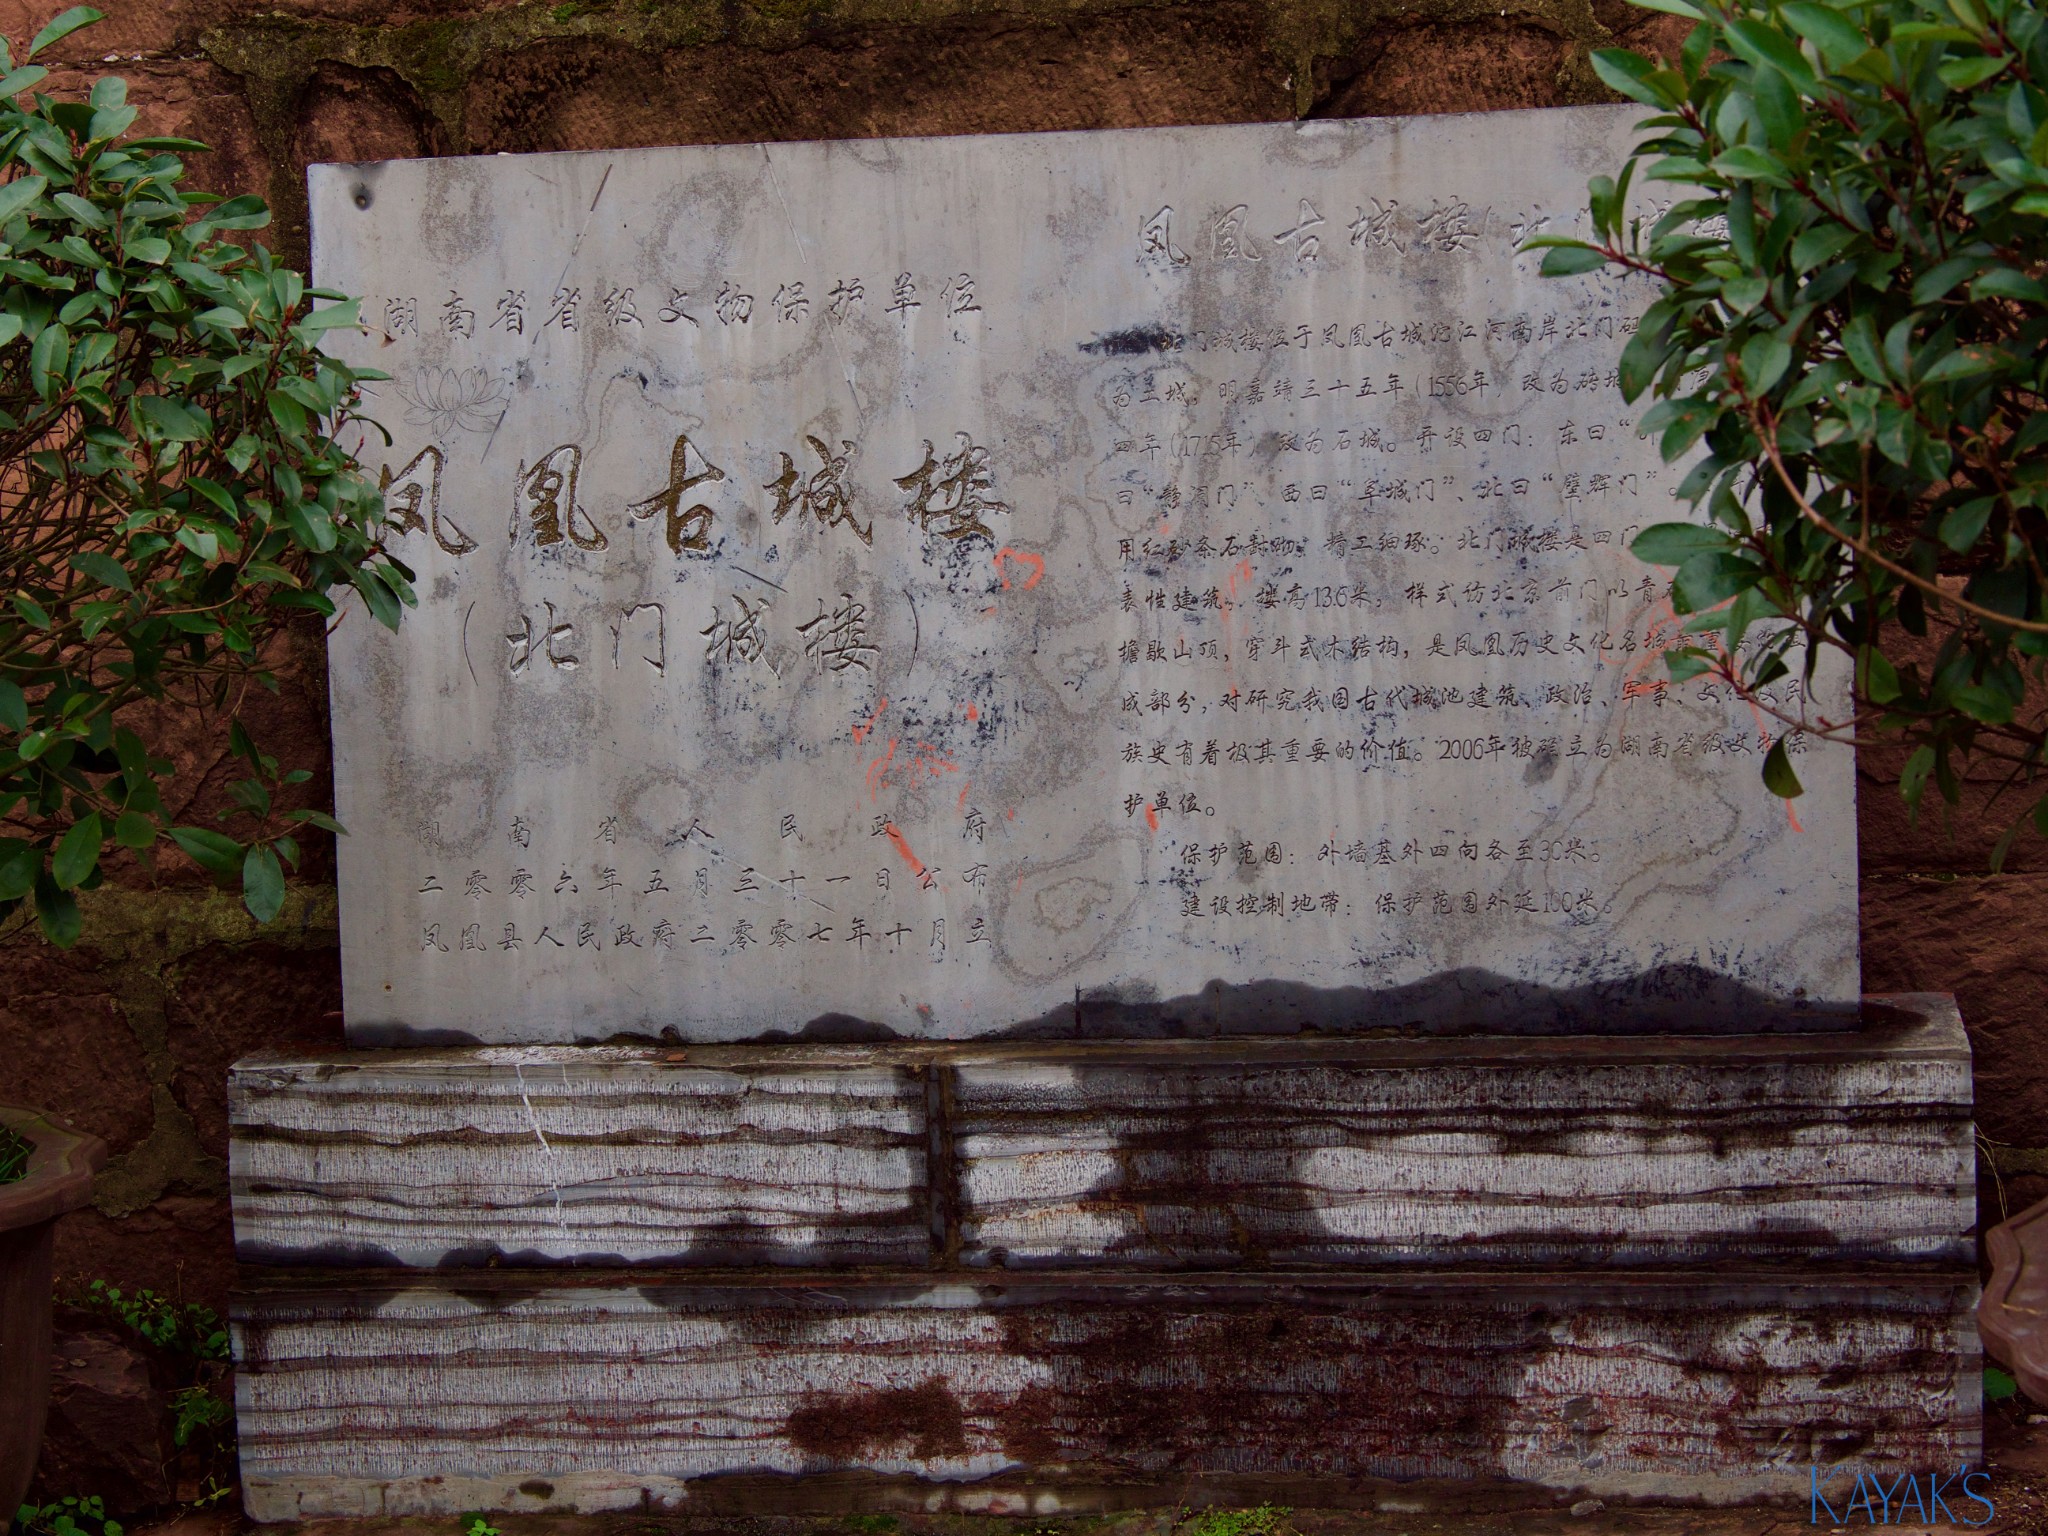 湖南省省级文物保护单位
凤凰古城楼
（北门城楼）
湖南省人民政府
二零零六年五月三十一日公布
凤凰县人民政府二零零七年十月立
凤凰古城楼(北门城楼
北门城楼位于凤凰古城沱江河南岸北门码
为土城，明嘉靖三十五年(1556年)改为砖城
四年(1715年)改为石城。开设四门：东曰“
曰“静澜门”、西曰“阜城门”、北曰“壁辉门”。
用红砂条石封砌，精工细琢。北门城楼是四门
表性建筑，楼高13.6米，样式仿北京前门以青
檐歇山顶，穿斗式木结构，是凤凰历史文化名城
成部分，对研究我国古代城池建筑、政治、军事、文化及民
族史有着极其重要的价值。2006年被确立为湖南省级文物保
护单位。
保护范围：外墙基外四向各至30米。
建设控制地带：保护范围外延100米。
KAYAK'S